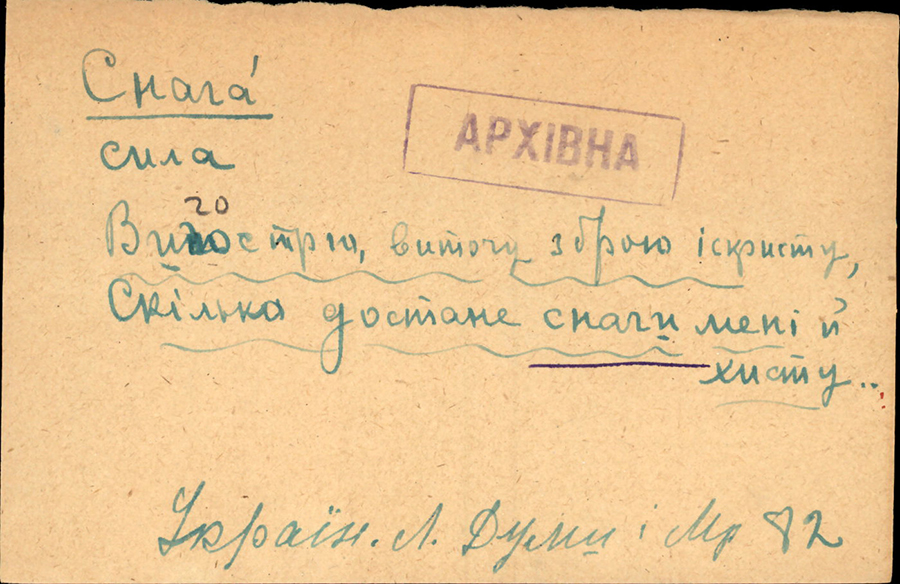 Снага́
АРХІВНА
сила
Вигострю, виточу зброю іскристу,
Скілька достане снаги мені й
хисту..
Україн. Л. Думи і Мр 82